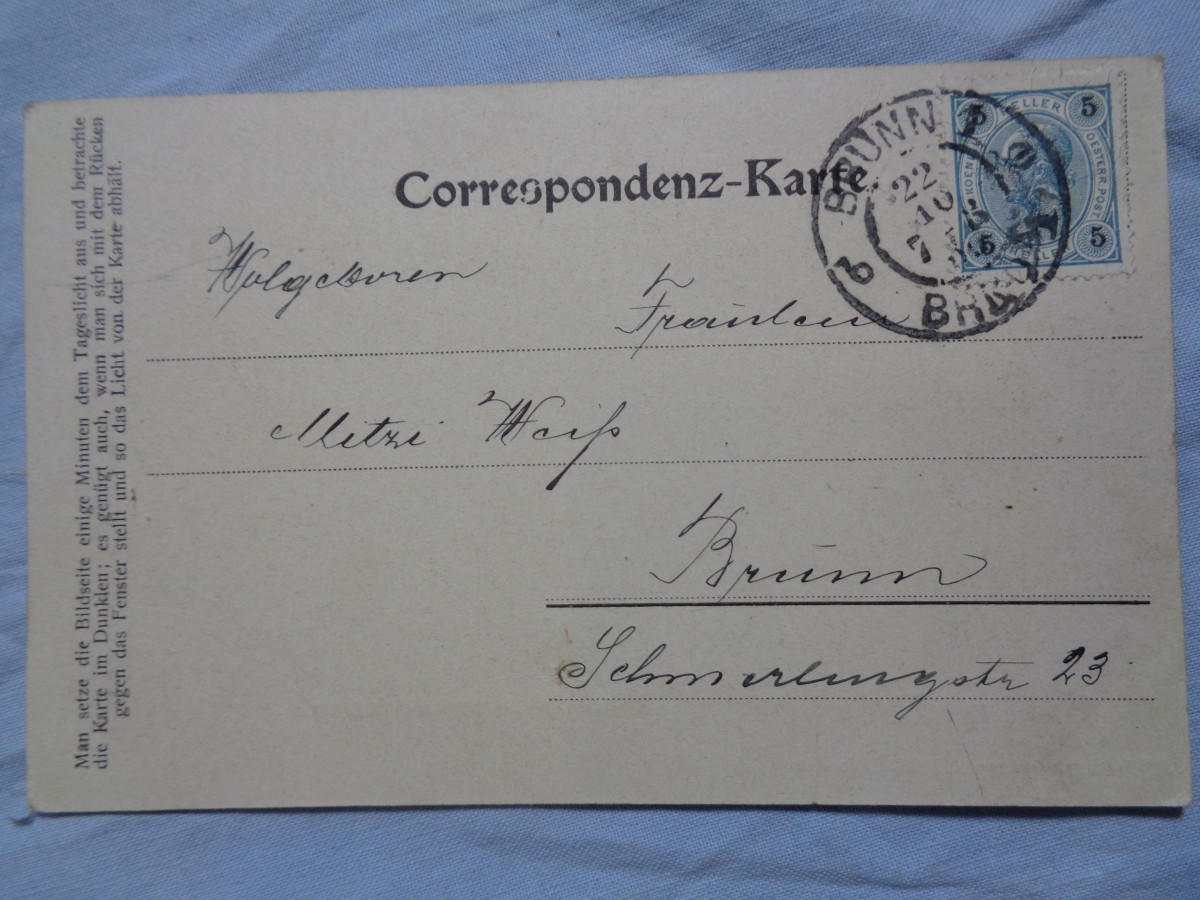 Correspondenz-Karte.
Wolgeboren
Fräulein
Mitzi Weiß
Brünn
Schmerlingstr 23
Man setze die Bildseite einige Minuten dem Tageslicht aus und betrachte
die Karte im Dunklen; es genügt auch, wenn man sich mit dem Rücken
gegen das Fenster stellt und so das Licht von der Karte abhält.
BRÜNN 1
22
10
7
5 HELLER 5
OESTERR. POST
5 5